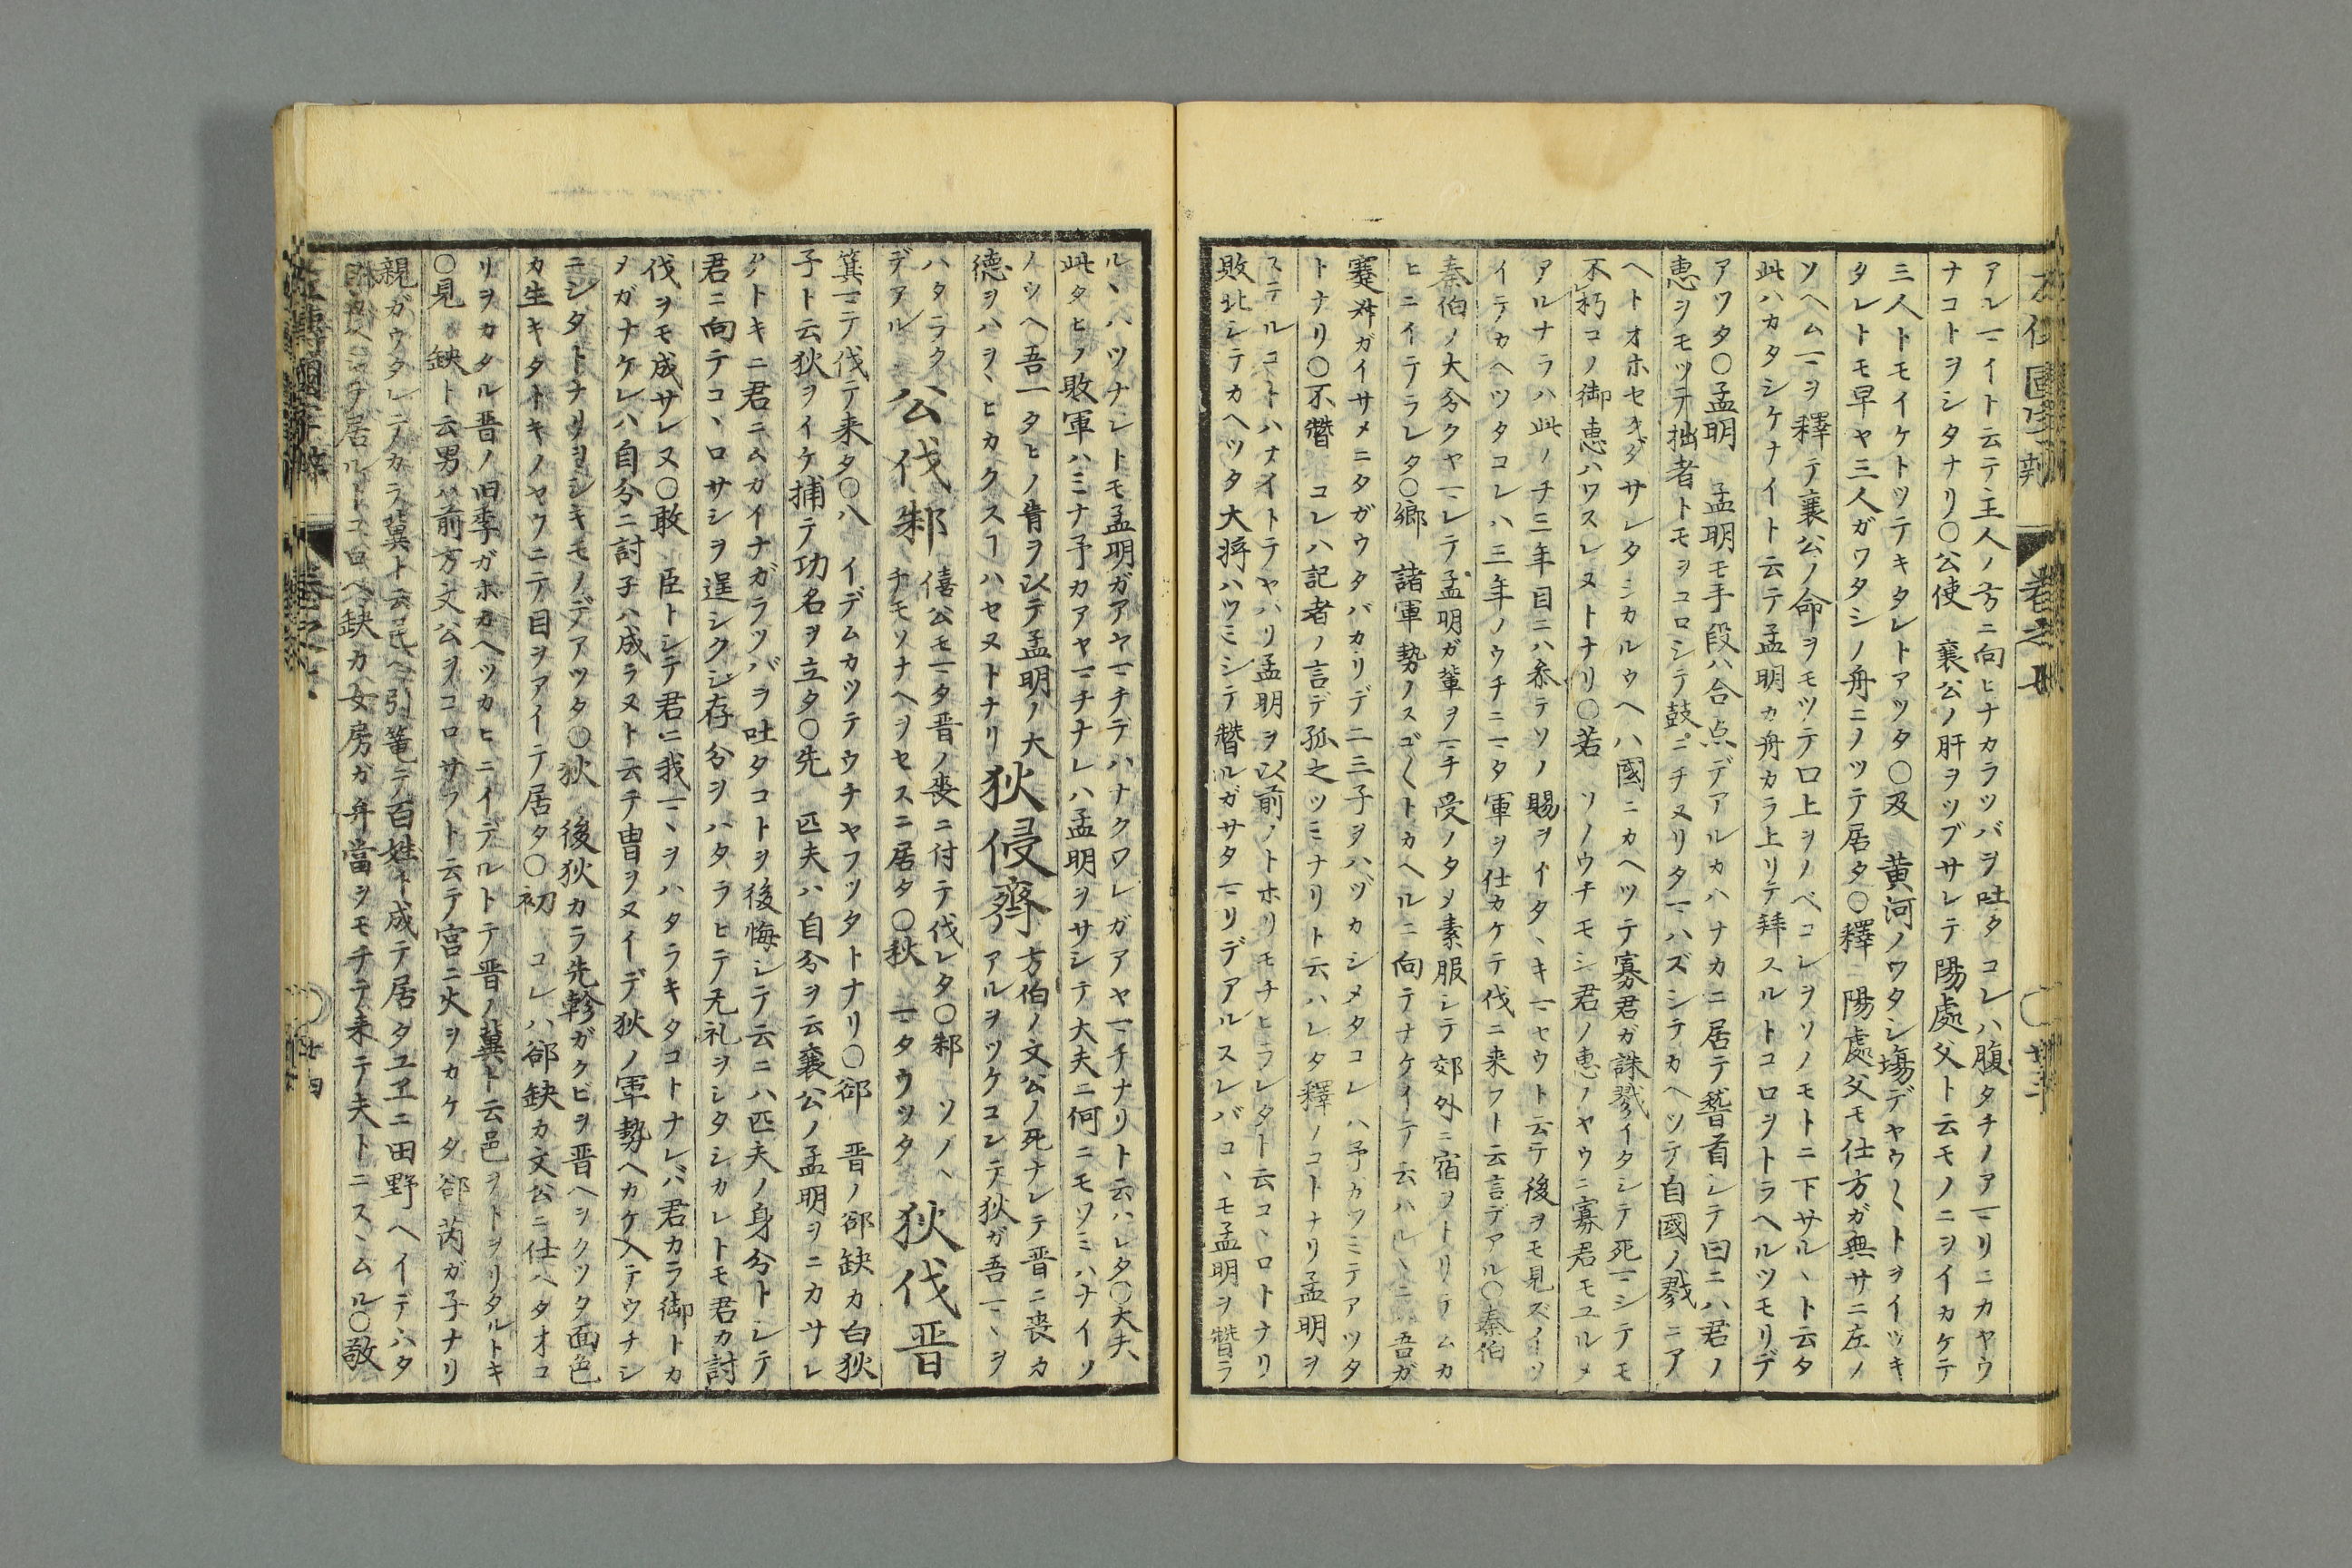 アルヿイト云テ主人ノ方ニ向ヒナカラツバヲ吐タコレハ腹タチノアヿリニカヤウ
ナコトヲシタナリ〇公使 襄公ノ肝ヲツブサレテ陽處父ト云モノニヲイカケテ
三人トモイケトツテキタレトアツタ〇及 黄河ノワタシ塲デヤウ〱トヲイツキ
タレトモ早ヤ三人ガワタシノ舟ニノツテ居タ〇釋 陽處父モ仕方ガ無サニ左ノ
ソヘムヿヲ釋テ襄公ノ命ヲモツテ口上ヲノベコレヲソノモトニ下サル、ト云タ
此ハカタシケナイト云テ孟明カ舟カラ上リテ拜スルトコロヲトラヘルツモリデ
アツタ〇孟明 孟明モ手段ハ合点デアルカハナカニ居テ䭫首レテ曰ニハ君ノ
惠ヲモツテ拙者トモヲコロシテ鼓ニチヌリタヿハズシテカヘソテ自國ノ戮ニア
ヘトオホセキダサレタシカルウヘハ國ニカヘツテ寡君ガ誅戮イタシテ死ヿシテモ
不朽コノ御惠ハワスレヌトナリ〇若 ソノウチモシ君ノ惠ノヤウニ寡君モユルメ
アルナラハ此ノチ三年目ニハ叅テソノ賜ヲイタ、キヿセウト云テ後ヲモ見ズイソ
イテカヘツタコレハ三年ノウチニヿタ軍ヲ仕カケテ伐ニ来フト云言デアル〇秦伯
秦伯ノ大分クヤヿレテ孟明ガ軰ヲヿチ受ノタメ素服シテ郊外ニ宿ヲトリテムカ
ヒニイテラレタ〇鄉 諸軍勢ノスゴ〱トカヘルニ向テナケイテ云ハル、ニ吾ガ
蹇叔ガイサメニタガウタバカリデ二三子ヲハヅカシメタコレハ予カツミテアツタ
トナリ〇不替 コレハ記者ノ言デ孤之ツミナリト云ハレタ釋ノコトナリ孟明ヲ
ステルコトハナイトテヤハリ孟明ヲ以前ノトホリモチヒラレタト云コ、ロトナリ
敗北シテカヘツタ大将ハツミシテ替ルガサタヿリデアルスレバコ、モ孟明ヲ替ラ
ル、ハツナレトモ孟明ガアヤヿチデハナクワレガアヤヿチナリト云ハレタ〇大夫
此タヒノ敗軍ハミナ予カアヤヿチナレハ孟明ヲサシテ大夫ニ何ニモソミハナイソ
ノウヘ吾一タヒノ眚ヲ以テ孟明ノ大
德ヲハヲ、ヒカクスヿハセヌトナリ
狄侵齊
方伯ノ文公ノ死ナレテ晋ニ喪カ
アルヲツケコンテ狄ガ吾ヿヽヲ
ハタラク
デアル
公伐邾
僖公モヿタ晋ノ喪ニ付テ伐レタ〇邾 ソノヘ
チモソナヘヲセスニ居タ〇秋 ヿタウツタ
狄伐晋
箕ヿテ伐テ来タ〇八 イデムカツテウチヤフツタトナリ〇郤 晋ノ郤缺カ白狄
子ト云狄ヲイケ捕テ功名ヲ立タ〇先 匹夫ハ自分ヲ云襄公ノ孟明ヲニカサレ
タトキニ君ニムカイナガラツバヲ吐タコトヲ後悔シテ云ニハ匹夫ノ身分トシテ
君ニ向テコ、ロサシヲ逞シクシ存分ヲハタラヒテ无礼ヲシタシカレトモ君カ討
伐ヲモ成サレヌ〇敢 臣トシテ君ニ我ヿヽヲハタラキタコトナレバ君カラ御トカ
ヲガナケレハ自分ニ討子ハ成ラヌト云テ冑ヲヌイデ狄ノ軍勢ヘカケ入テウチシ
ニシタトナリヲシキモノデアツタ〇狄 後狄カラ先軫ガクビヲ晋ヘヲクツタ面色
カ生キタトキノヤウニテ目ヲアイテ居タ〇初 コレハ郤缺カ文公ニ仕ヘタオコ
リヲカタル晋ノ臼季ガホカヘツカヒニイデルトテ晋ノ冀ト云邑ヲトヲリタルトキ
〇見 缺ト云男ハ前方文公ヲコロサフト云テ宮ニ火ヲカケタ郤芮ガ子ナリ
親ガウタレテカラ冀ト云邑ヘ引篭テ百姓ト成テ居タユヱニ田野ヘイデハタ
居ルトコロヘ缺カ女房ガ弁當ヲモチテ来テ夫トニス、ムル〇敬